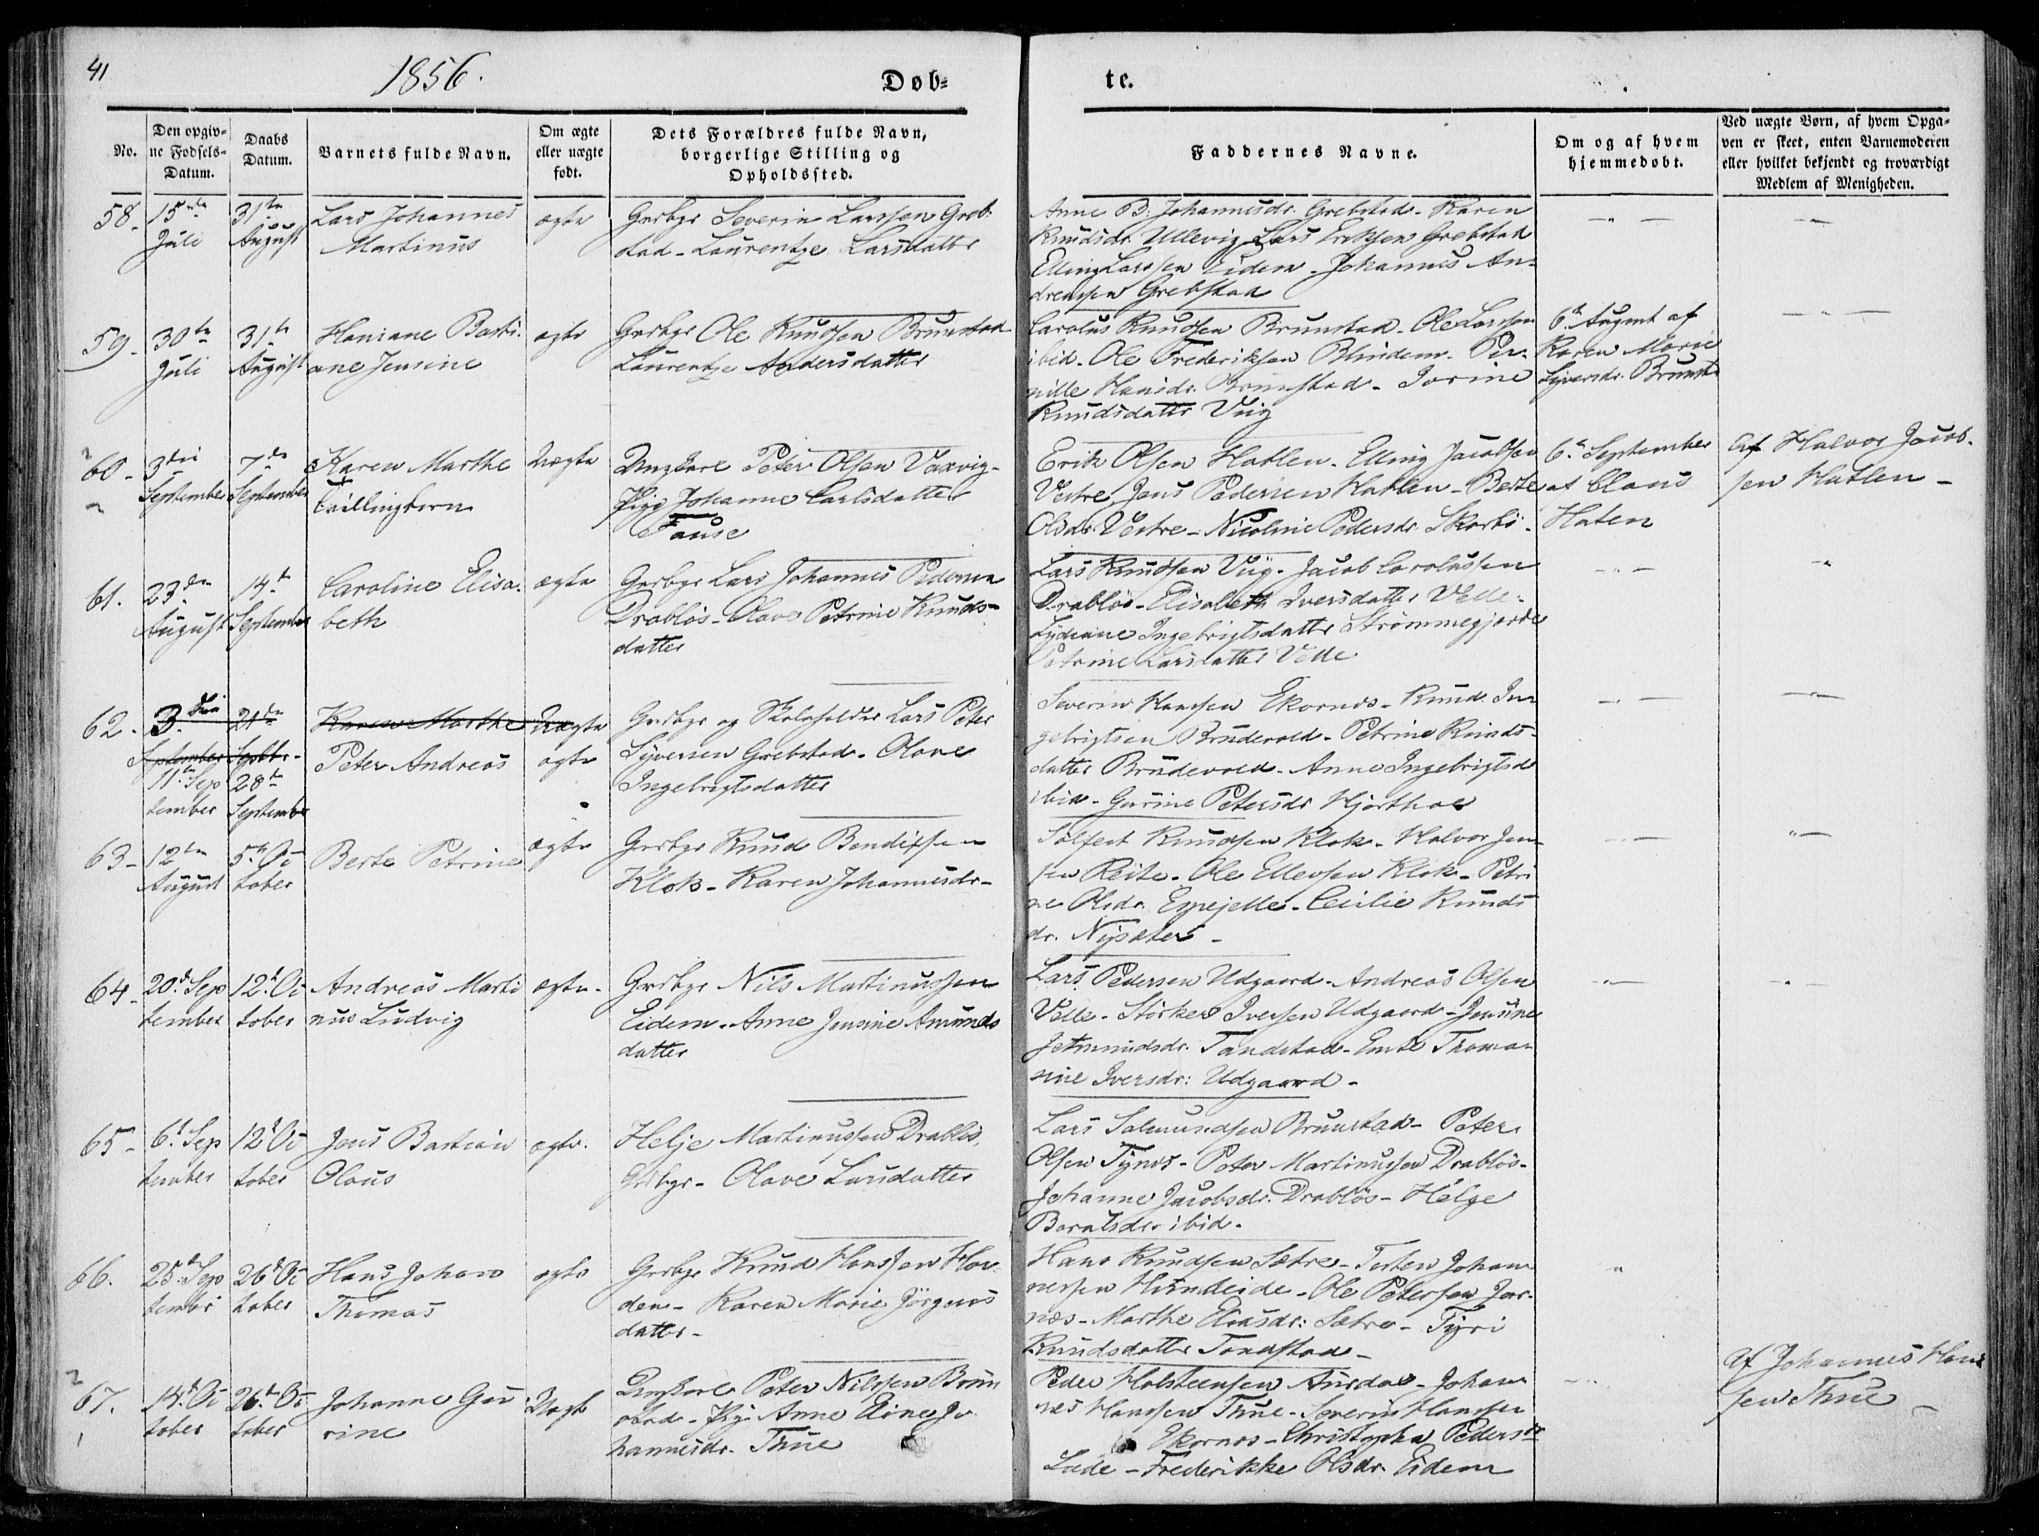 41
1856.
Døb-
te.
No.
Den opgiv-
ne Fødsels-
Datum.
Daabs
Datum.
Barnets fulde Navn.
Om ægte
eller uægte
født.
Dets Forældres fulde Navn,
borgerlige Stilling og
Opholdssted.
Faddernes Navne.
Om og af hvem
hjemmedøbt.
Ved uægte Børn, af hvem Opga-
ven er skeet, enten Barnemoderen
eller hvilket bekjendt og troværdigt
Medlem af Menigheden.
58.
15de
Juli
31te
August
Lars Johannes
Martinus
ægte
Grdbgr Severin Larssen Greb-
stad - Laurentze Larsdatter
Anne B. Johannesdr. Grebstad - Karen
Knudsdr. Ullevig - Lars Eriksen Grebstad
Elling Larssen Eidem - Johannes An-
dreassen Grebstad
59.
30te
Juli
31te
August
Hansane Basti-
ane Jensine
ægte
Grdbgr Ole Knudsen Brunstad
Laurentze Andersdatter
Carolus Knudsen Brunstad - Ole Larssen
ibid - Ole Frederiksen Blindem - Per-
nille Hansdr. Brunstad - Jorine
Knudsdatter Viig
6te August af
Karen Marie
Syversdr. Brunst.
60.
3die
September
7de
September
Karen Marthe
Tvillingbørn
Uægte
Ungkarl Peter Olsen Vaxvig -
Pige Johanne Carlsdatter
Fause
Erik Olsen Hatlen - Elling Jacobsen
Vestre - Jens Pedersen Hatlen - Berte
Olsdr. Vestre - Nicoline Pedersdr. Skorbø -
6te September
af Claus
Haten
Af Halvor Jacob-
sen Hatlen -
61.
23de
August
14de
September
Caroline Elisa-
beth
ægte
Grdbgr Lars Johannes Pedersen
Drabløs - Olave Petrine Knuds-
datter
Lars Knudsen Viig - Jacob Carolussen
Drabløs - Elisabeth Iversdatter Velle -
Lydiane Ingebrigtsdatter Strømmegjærde
Petrine Larsdatter Velle
62.
3die
September
21de
Septbr.
Karen Marthe
Uægte
11te Sep
tember
28de
September
Peter Andreas
ægte
Grdbgr og Skoleholder Lars Peter
Syversen Grebstad - Olave
Ingebrigtsdatter
Severin Hanssen Ekornes - Knud In-
gebrigtsen Brudevold - Petrine Knuds-
datter Brudevold - Anne Ingebrigtsd
ibid - Gurine Petersdr Hjorthol
63.
12te
August
5te Oc
tober
Berte Petrine
ægte
Grdbgr Knud Bendixsen
Klok - Karen Johannesdr -
Sølfest Knudsen Klok - Halvor Jen-
sen Reite - Ole Ellevsen Klok - Petri
ne Olsdr. Espejelle - Cecilie Knuds
dr. Nysæter -
64.
20de Sep
tember
12te Oc
tober
Andreas Marti
nus Ludvig
ægte -
Grdbgr Nils Martinussen
Eidem - Anne Jensine Amunds
datter
Lars Pedersen Udgaard - Andreas Olsen
Velle - Størker Iversen Udgaard - Jensine
Jetmundsdr. Tandstad - Emte Thoma-
sine Iversdr: Udgaard -
65.
6te Sep
tember
12te Oc
tober
Jens Bastian
Olaus
ægte.
Helje Martinussen Drabløs,
Grdbgr - Olave Larsdatter
Lars Salmundsen Brunstad - Peter
Olsen Tynes - Peter Martinussen Drabløs -
Johanne Jacobsdr. Drabløs - Helge
Baraldsdr ibid.
66.
25de Sep
tember
26de Oc
tober
Hans Johan
Thomas
ægte
Grdbgr Knud Hanssen Hov-
den - Karen Marie Jørgens
datter -
Hans Knudsen Sætre - Torsten Johan
nessen Hundeide - Ole Petersen Jar-
næs - Marthe Eliasdr: Sætre - Tyri
Knudsdatter Tandstad -
67.
14de Oc
tober
26de Oc
tober
Johanne Gu
rine
Uægte
Ungkarl Peter Nilssen Brun
stad - Pige Anne Eline Jo
hannesdr. Thue
Peder Holstensen Aursdal - Johan
nes Hanssen Thue - Severin Hanssen
Ekornes - Christopha Pedersdr
Lade - Frederikke Olsdr. Eidem
Af Johannes Han
sen Thue -